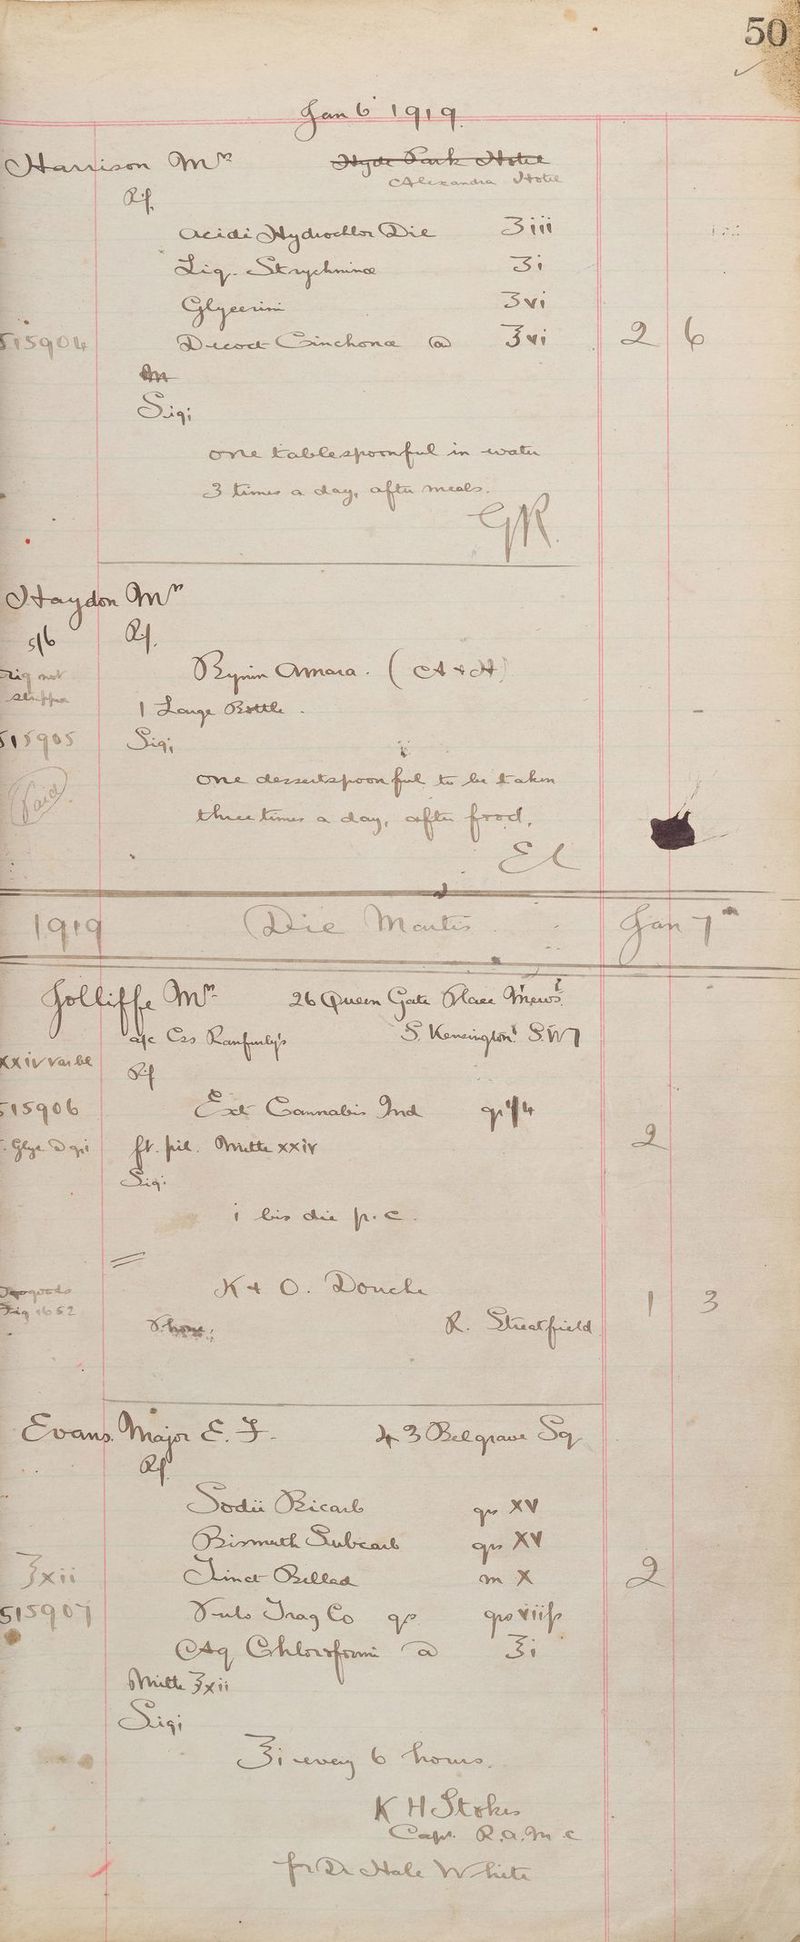 50
Jan 6 1919
Harrison Mrs Hyde Park Hotel
Alexandra Hotel
Rf.
Acidi Hydrochlor Dil ʒiii
Liq. Strychninae ʒi
Glycerini ʒvi
515904 Decoct Cinchonae @ ℥vi 2 6
M
Sig;
one tablespoonful in water
3 times a day, after meals.
GR.
Haydon Mrs
5/6 Rf.
Bynin Amara. (A & H)
1 Large Bottle.
515905 Sig;
one dessertspoonful to be taken
Paid
three times a day, after food.
1919 Die Martis Jan 7th
Jolliffe Mrs 26 Queen Gate Place Mews
a/c Css Ranfurly's S. Kensington S.W7
Rf
515906 Ext Cannabis Ind gr 1/4
ft. pil. Mitte xxiv 2
Sig:
i bis die p.c.
K & O. Douche 1 3
R. Streatfield
Evans. Major E. F. 43 Belgrave Sq
Rf
Sodii Bicarb grs XV
Bismuth Subcarb grs XV
℥xii Tinct Bellad m X 2
515907 Pulv Trag Co qs grs viifs
Aq Chloroformi @ ℥i
Mitte ℥xii
Sig;
℥i every 6 hours.
K H Stokes
Capt. R.A.M.C
for Dr Hale White